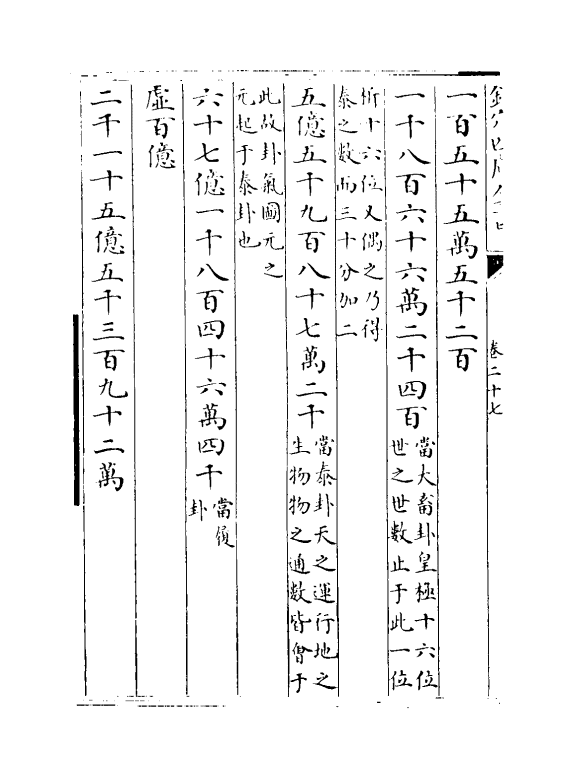 卷二十七
一百五十五萬五千二百
一千八百六十六萬二千四百
當大畜卦皇極十六位
世之世數止于此一位
析十六位又偶之乃得
泰之數而三十分加二
五億五千九百八十七萬二千
當泰卦天之運行地之
生物物之通數皆會于
此故卦氣圖元之
元起于泰卦也
六十七億一千八百四十六萬四千
當履
卦
虛百億
二千一十五億五千三百九十二萬